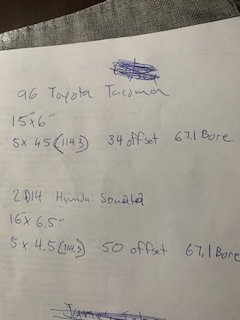 96 Toyota Tacoma
15"x6"
5x 4.5 (114.3) 34 offset 67.1 Bore
2014 Hyundai Sonata
16"x 6.5"
5x 4.5 (114.3) 50 offset 67.1 Bore